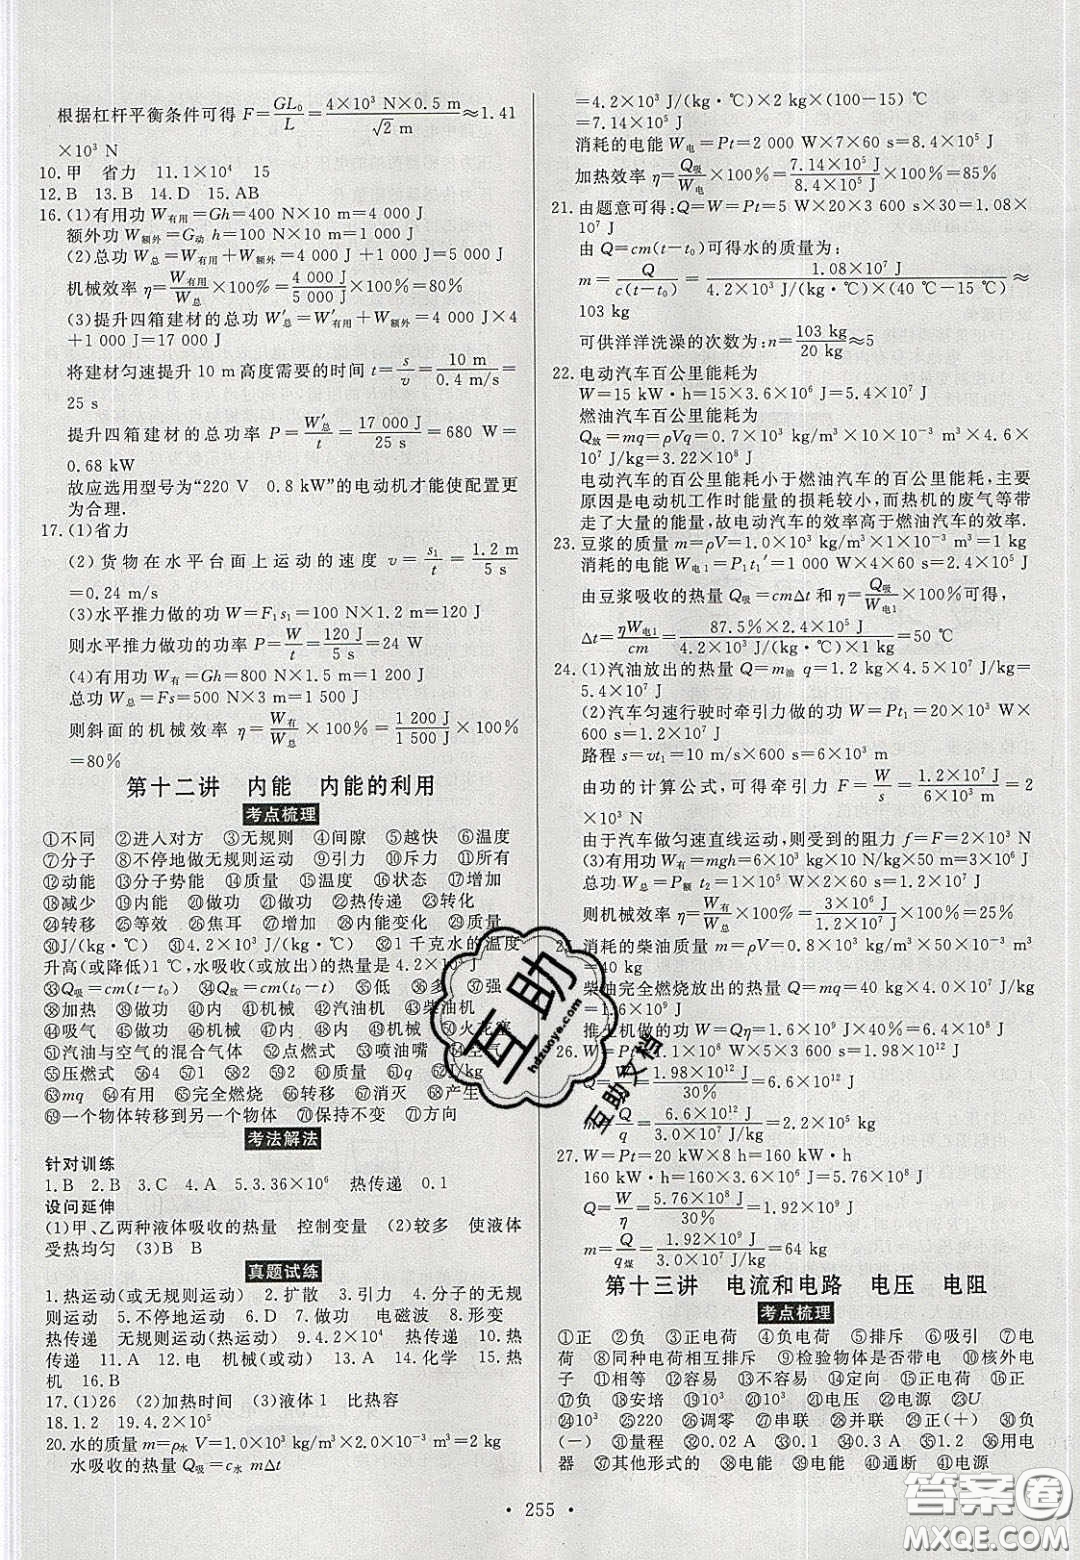 根据杠杆平衡条件可得 F=GL₀/L=4×10³ N×0.5 m/√2 m≈1.41
×10³ N
10.甲 省力 11.1×10⁴ 15
12.B 13.B 14.D 15.AB
16.(1)有用功 W有用=Gh=400 N×10 m=4 000 J
额外功 W额外=G动 h=100 N×10 m=1 000 J
(2)总功 W总=W有用+W额外=4 000 J+1 000 J=5 000 J
机械效率 η=W有用/W总×100%=4 000 J/5 000 J×100%=80%
(3)提升四箱建材的总功 W′总=W′有用+W额外=4 000 J×4
+1 000 J=17 000 J
将建材匀速提升 10 m高度需要的时间 t=s/v=10 m/0.4 m/s=
25 s
提升四箱建材的总功率 P=W′总/t=17 000 J/25 s=680 W=
0.68 kW
故应选用型号为“220 V 0.8 kW”的电动机才能使配置更
为合理.
17.(1)省力
(2)货物在水平台面上运动的速度 v=s₁/t=1.2 m/5 s
=0.24 m/s
(3)水平推力做的功 W=F₁s₁=100 N×1.2 m=120 J
则水平推力做功的功率 P=W/t=120 J/5 s=24 W
(4)有用功 W有=Gh=800 N×1.5 m=1 200 J
总功 W总=Fs=500 N×3 m=1 500 J
则斜面的机械效率 η=W有/W总×100%=1 200 J/1 500 J×100%
=80%
第十二讲 内能 内能的利用
考点梳理
①不同 ②进入对方 ③无规则 ④间隙 ⑤越快 ⑥温度
⑦分子 ⑧不停地做无规则运动 ⑨引力 ⑩斥力 ⑪所有
⑫动能 ⑬分子势能 ⑭质量 ⑮温度 ⑯状态 ⑰增加
⑱减少 ⑲内能 ⑳做功 ㉑做功 ㉒热传递 ㉓转化
㉔转移 ㉕等效 ㉖焦耳 ㉗增加 ㉘内能变化 ㉙质量
㉚J/(kg·℃) ㉛4.2×10³ J/(kg·℃) ㉜1 千克水的温度
升高(或降低)1 ℃,水吸收(或放出)的热量是 4.2×10³ J
㉝Q吸=cm(t-t₀) ㉞Q放=cm(t₀-t) ㉟低 ㊱多 ㊲强
㊳加热 ㊴做功 ㊵内 ㊶机械 ㊷汽油机 ㊸柴油机
㊹吸气 ㊺做功 ㊻机械 ㊼内 ㊽机械 ㊾内 ㊿火花塞
51汽油与空气的混合气体 52点燃式 53喷油嘴 54空气
55压燃式 56 4 57 1 58 2 59 2 60质量 61q 62J/kg
63mq 64完全燃烧 65转移 66转化 67消灭 68产生
69一个物体转移到另一个物体 70保持不变 71方向
考法解法
针对训练
1.B 2.B 3.C 4.A 5.3.36×10⁶ 热传递 0.1
设问延伸
(1)甲、乙两种液体吸收的热量 控制变量 (2)较多 使液体
受热均匀 (3)B B
真题试练
1.热运动(或无规则运动) 2.扩散 3.引力 4.分子的无规
则运动 5.不停地运动 6.D 7.做功 电磁波 8.形变
热传递 无规则运动(热运动) 9.4.2×10⁴ 热传递 10.热
传递 11.A 12.电 机械(或动) 13.A 14.化学 15.热
机 16.B
17.(1)26 (2)加热时间 (3)液体 1 比热容
18.1.2 19.4.2×10⁵
20.水的质量 m=ρ水 V=1.0×10³ kg/m³×2.0×10⁻³ m³=2 kg
水吸收的热量 Q吸=c水 mΔt
=4.2×10³ J/(kg·℃)×2 kg×(100-15) ℃
=7.14×10⁵ J
消耗的电能 W电=Pt=2 000 W×7×60 s=8.4×10⁵ J
加热效率 η=Q吸/W电×100%=7.14×10⁵ J/8.4×10⁵ J×100%=85%
21.由题意可得:Q=W=Pt=5 W×20×3 600 s×30=1.08×
10⁷ J
由 Q=cm(t-t₀)可得水的质量为:
m=Q/c(t-t₀)=1.08×10⁷ J/4.2×10³ J/(kg·℃)×(40 ℃-15 ℃)≈
103 kg
可供洋洋洗澡的次数为:n=103 kg/20 kg≈5
22.电动汽车百公里能耗为
W=15 kW·h=15×3.6×10⁶ J=5.4×10⁷ J
燃油汽车百公里能耗为
Q放=mq=ρVq=0.7×10³ kg/m³×10×10⁻³ m³×4.6×
10⁷ J/kg=3.22×10⁸ J
电动汽车的百公里能耗小于燃油汽车的百公里能耗,主要
原因是电动机工作时能量的损耗较小,而热机的废气等带
走了大量的能量,故电动汽车的效率高于燃油汽车的效率.
23.豆浆的质量 m=ρV=1.0×10³ kg/m³×1×10⁻³ m³=1 kg
消耗的电能 W电1=P₁t₁′=1 000 W×4×60 s=2.4×10⁵ J
由豆浆吸收的热量 Q吸=cmΔt 和 η=Q吸/W电1×100%可得,
Δt=ηW电1/cm=87.5%×2.4×10⁵ J/4.2×10³ J/(kg·℃)×1 kg=50 ℃
24.(1)汽油放出的热量 Q=m油 q=1.2 kg×4.5×10⁷ J/kg=
5.4×10⁷ J
(2)汽车匀速行驶时牵引力做的功 W=Pt₁=20×10³ W×
600 s=1.2×10⁷ J
路程 s=vt₁=10 m/s×600 s=6×10³ m
由功的计算公式,可得牵引力 F=W/s=1.2×10⁷ J/6×10³ m=2×
10³ N
由于汽车做匀速直线运动,则受到的阻力 f=F=2×10³ N
(3)有用功 W有=mgh=6×10³ kg×10 N/kg×50 m=3×10⁶ J
总功 W总=P额 t₂=1×20×10³ W×10×60 s=1.2×10⁷ J
则机械效率 η=W有/W总×100%=3×10⁶ J/1.2×10⁷ J×100%=25%
25.消耗的柴油质量 m=ρV=0.8×10³ kg/m³×50×10⁻³ m³
=40 kg
柴油完全燃烧放出的热量 Q=mq=40 kg×4.0×10⁷ J/kg
=1.6×10⁹ J
推土机做的功 W=Qη=1.6×10⁹ J×40%=6.4×10⁸ J
26.W=Pt=1.1×10⁸ W×5×3 600 s=1.98×10¹² J
Q=W/η=1.98×10¹² J/30%=6.6×10¹² J
Q/q=6.6×10¹² J/3.0×10⁷ J/kg=2.2×10⁵ kg
27.W=Pt=20 kW×8 h=160 kW·h
160 kW·h=160×3.6×10⁶ J=5.76×10⁸ J
Q=W/η=5.76×10⁸ J/30%=1.92×10⁹ J
m=Q/q煤=1.92×10⁹ J/3.0×10⁷ J/kg=64 kg
第十三讲 电流和电路 电压 电阻
考点梳理
①正 ②负 ③正电荷 ④负电荷 ⑤排斥 ⑥吸引 ⑦电
荷 ⑧同种电荷相互排斥 ⑨检验物体是否带电 ⑩核外电
子 ⑪相等 ⑫容易 ⑬不容易 ⑭定向 ⑮正电荷 ⑯正
⑰负 ⑱安培 ⑲10³ ⑳10⁶ ㉑电压 ㉒电源 ㉓U
㉔10³ ㉕220 ㉖调零 ㉗串联 ㉘并联 ㉙正(+) ㉚负
(-) ㉛量程 ㉜0.02 A ㉝0.1 ㉞0.5 ㉟1.2 ㊱用电
器 ㊲其他形式的 ㊳电能 ㊴电能 ㊵通断 ㊶电源
• 255 •
互助
hdzuoye.com
互助文档
答案圈
MXQE.COM